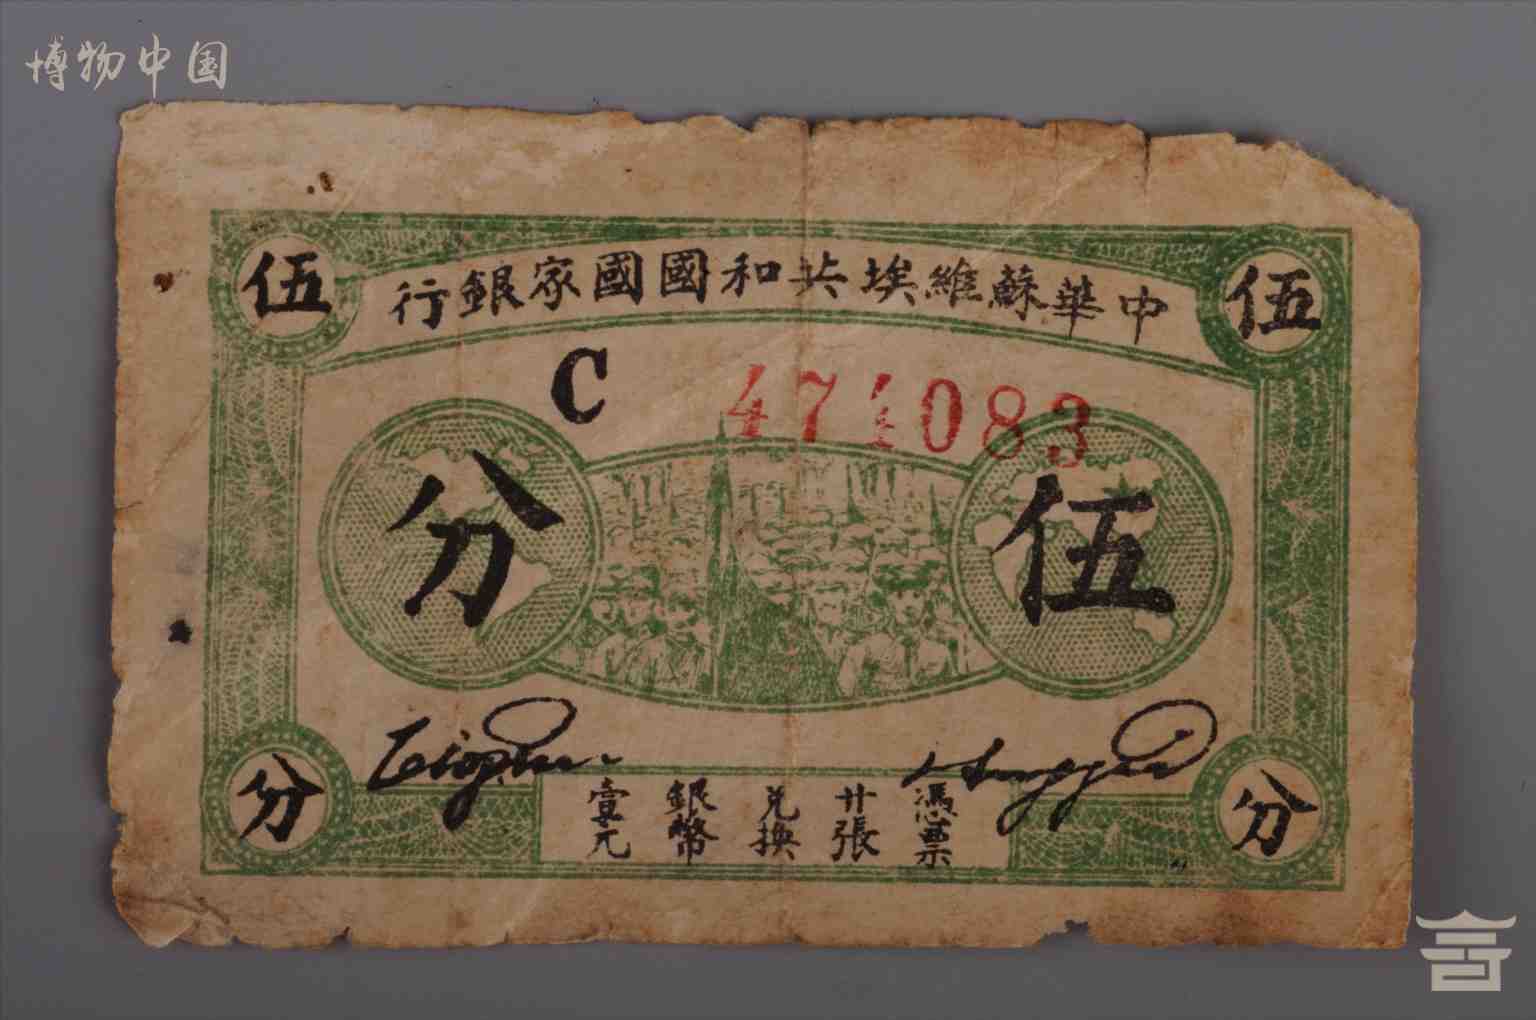 博物中国
伍
中華蘇維埃共和國國家銀行
伍
C 471083
伍分
憑票廿張兑換銀幣壹元
分
分